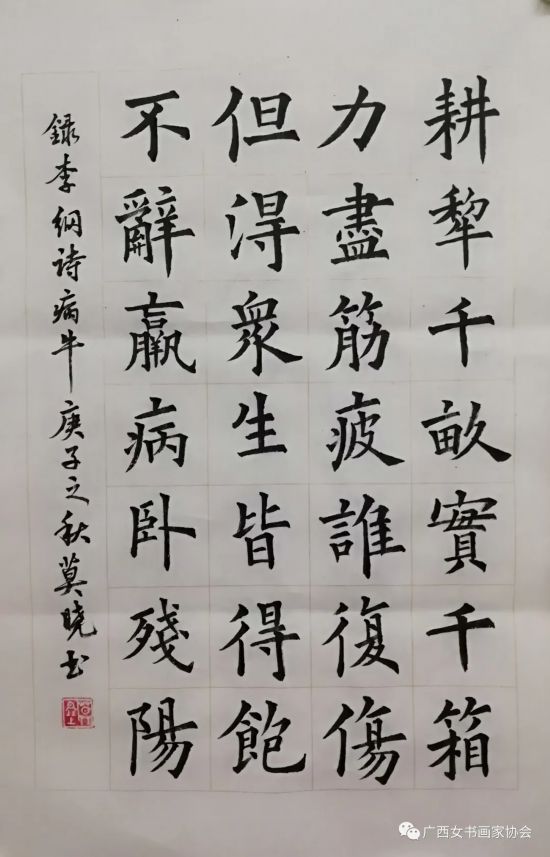 耕犂千畝實千箱
力盡筋疲誰復傷
但淂衆生皆得飽
不辭羸病卧殘陽
録李綱詩病牛庚子之秋莫晓书
广西女书画家协会